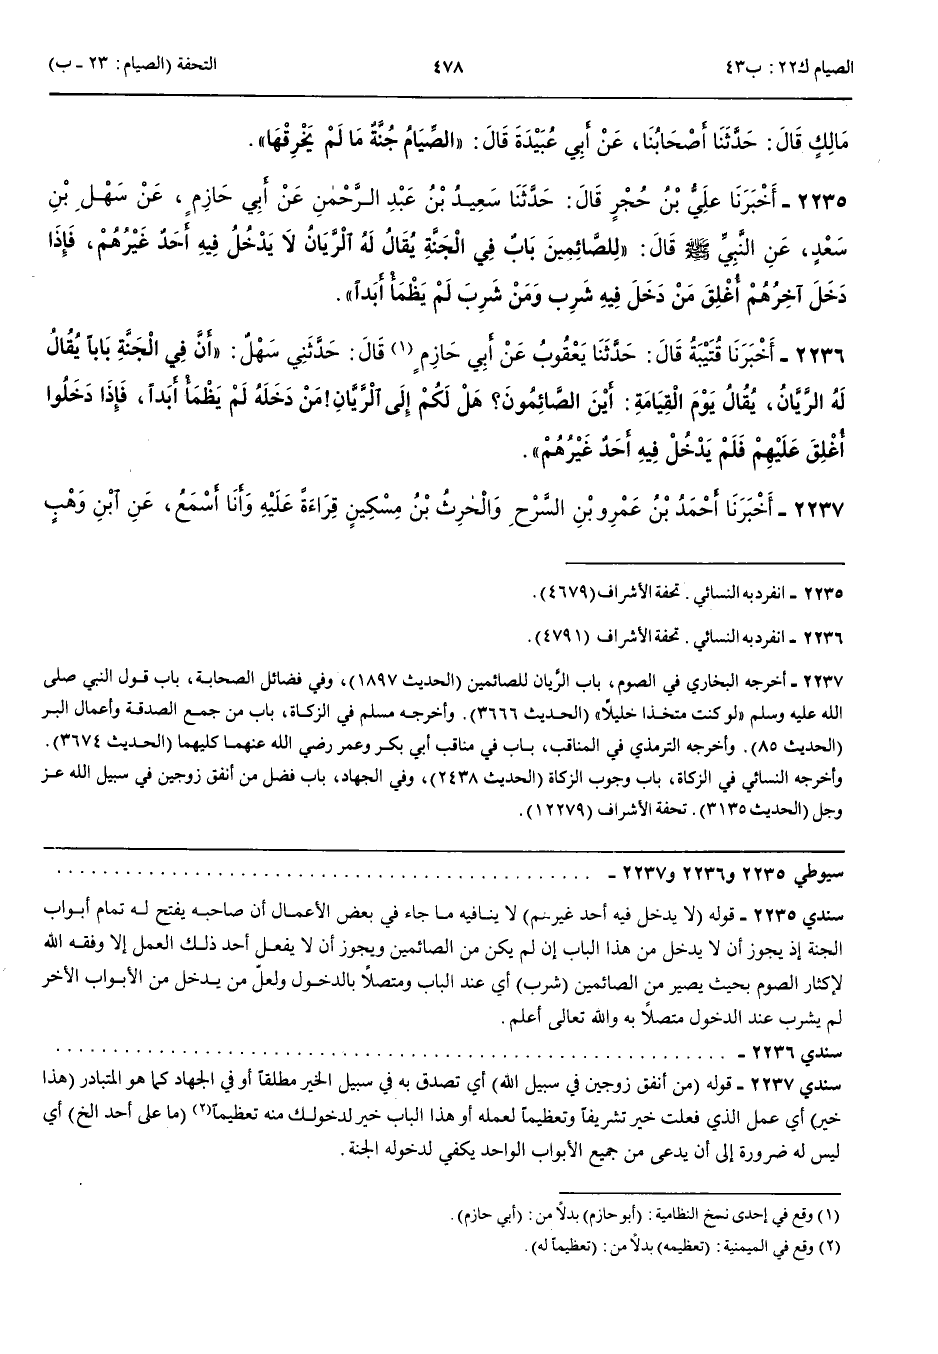 الصيام ك٢٢: ب٤٣
٤٧٨
التحفة (الصيام: ٢٣ - ب)
مَالِكٍ قَالَ: حَدَّثَنَا أَصْحَابُنَا، عَنْ أَبِي عُبَيْدَةَ قَالَ: «الصِّيَامُ جُنَّةٌ مَا لَمْ يَخْرِقْهَا».
٢٢٣٥ - أَخْبَرَنَا عَلِيُّ بْنُ حُجْرٍ قَالَ: حَدَّثَنَا سَعِيدُ بْنُ عَبْدِ الرَّحْمٰنِ عَنْ أَبِي حَازِمٍ، عَنْ سَهْلِ بْنِ
سَعْدٍ، عَنِ النَّبِيِّ ﷺ قَالَ: «لِلصَّائِمِينَ بَابٌ فِي الْجَنَّةِ يُقَالُ لَهُ ٱلْرَّيَّانُ لَا يَدْخُلُ فِيهِ أَحَدٌ غَيْرُهُمْ، فَإِذَا
دَخَلَ آخِرُهُمْ أُغْلِقَ مَنْ دَخَلَ فِيهِ شَرِبَ وَمَنْ شَرِبَ لَمْ يَظْمَأْ أَبَداً».
٢٢٣٦ - أَخْبَرَنَا قُتَيْبَةُ قَالَ: حَدَّثَنَا يَعْقُوبُ عَنْ أَبِي حَازِمٍ(١) قَالَ: حَدَّثَنِي سَهْلٌ: «أَنَّ فِي الْجَنَّةِ بَاباً يُقَالُ
لَهُ الرَّيَّانُ، يُقَالُ يَوْمَ الْقِيَامَةِ: أَيْنَ الصَّائِمُونَ؟ هَلْ لَكُمْ إِلَى ٱلْرَّيَّانِ! مَنْ دَخَلَهُ لَمْ يَظْمَأْ أَبَداً، فَإِذَا دَخَلُوا
أُغْلِقَ عَلَيْهِمْ فَلَمْ يَدْخُلْ فِيهِ أَحَدٌ غَيْرُهُمْ».
٢٢٣٧ - أَخْبَرَنَا أَحْمَدُ بْنُ عَمْرِو بْنِ السَّرْحِ وَالْحٰرِثُ بْنُ مِسْكِينٍ قِرَاءَةً عَلَيْهِ وَأَنَا أَسْمَعُ، عَنِ ٱبْنِ وَهْبٍ
٢٢٣٥ - انفرد به النسائي. تحفة الأشراف (٤٦٧٩).
٢٢٣٦ - انفرد به النسائي. تحفة الأشراف (٤٧٩١).
٢٢٣٧ - أخرجه البخاري في الصوم، باب الرَّيان للصائمين (الحديث ١٨٩٧)، وفي فضائل الصحابة، باب قول النبي صلى
الله عليه وسلم «لو كنت متخذا خليلاً» (الحديث ٣٦٦٦). وأخرجه مسلم في الزكاة، باب من جمع الصدقة وأعمال البر
(الحديث ٨٥). وأخرجه الترمذي في المناقب، باب في مناقب أبي بكر وعمر رضي الله عنهما كليهما (الحديث ٣٦٧٤).
وأخرجه النسائي في الزكاة، باب وجوب الزكاة (الحديث ٢٤٣٨)، وفي الجهاد، باب فضل من أنفق زوجين في سبيل الله عز
وجل (الحديث ٣١٣٥). تحفة الأشراف (١٢٢٧٩).
سيوطي ٢٢٣٥ و٢٢٣٦ و٢٢٣٧ - . . . . . . . . . . . . . . . . . . . .
سندي ٢٢٣٥ - قوله (لا يدخل فيه أحد غيرهم) لا ينافيه ما جاء في بعض الأعمال أن صاحبه يفتح له تمام أبواب
الجنة إذ يجوز أن لا يدخل من هذا الباب إن لم يكن من الصائمين ويجوز أن لا يفعل أحد ذلك العمل إلا وفقه الله
لإكثار الصوم بحيث يصير من الصائمين (شرب) أي عند الباب ومتصلاً بالدخول ولعلّ من يدخل من الأبواب الأخر
لم يشرب عند الدخول متصلاً به والله تعالى أعلم.
سندي ٢٢٣٦ - . . . . . . . . . . . . . . . . . . . .
سندي ٢٢٣٧ - قوله (من أنفق زوجين في سبيل الله) أي تصدق به في سبيل الخير مطلقاً أو في الجهاد كما هو المتبادر (هذا
خير) أي عمل الذي فعلت خير تشريفاً وتعظيماً لعمله أو هذا الباب خير لدخولك منه تعظيماً(٢) (ما على أحد الخ) أي
ليس له ضرورة إلى أن يدعى من جميع الأبواب الواحد يكفي لدخوله الجنة.
(١) وقع في إحدى نسخ النظامية: (أبو حازم) بدلاً من: (أبي حازم).
(٢) وقع في الميمنية: (تعظيمه) بدلاً من: (تعظيماً له).